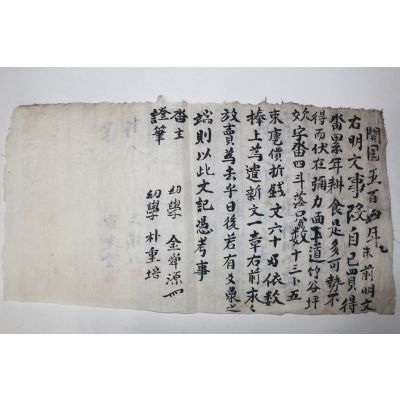 開国五百四年乙未 前明文
右明文事段自己買得
畓累年耕食是多可勢不
得而伏在彌力面下道竹谷坪
字畓四斗落只負數十三卜五
束庫價折錢文六十兩依數
捧上爲遣新文一章右前永永
放賣爲去乎日後若有文
端則以此文記憑考事
畓主 幼學 金 源
證筆 幼學 朴重培